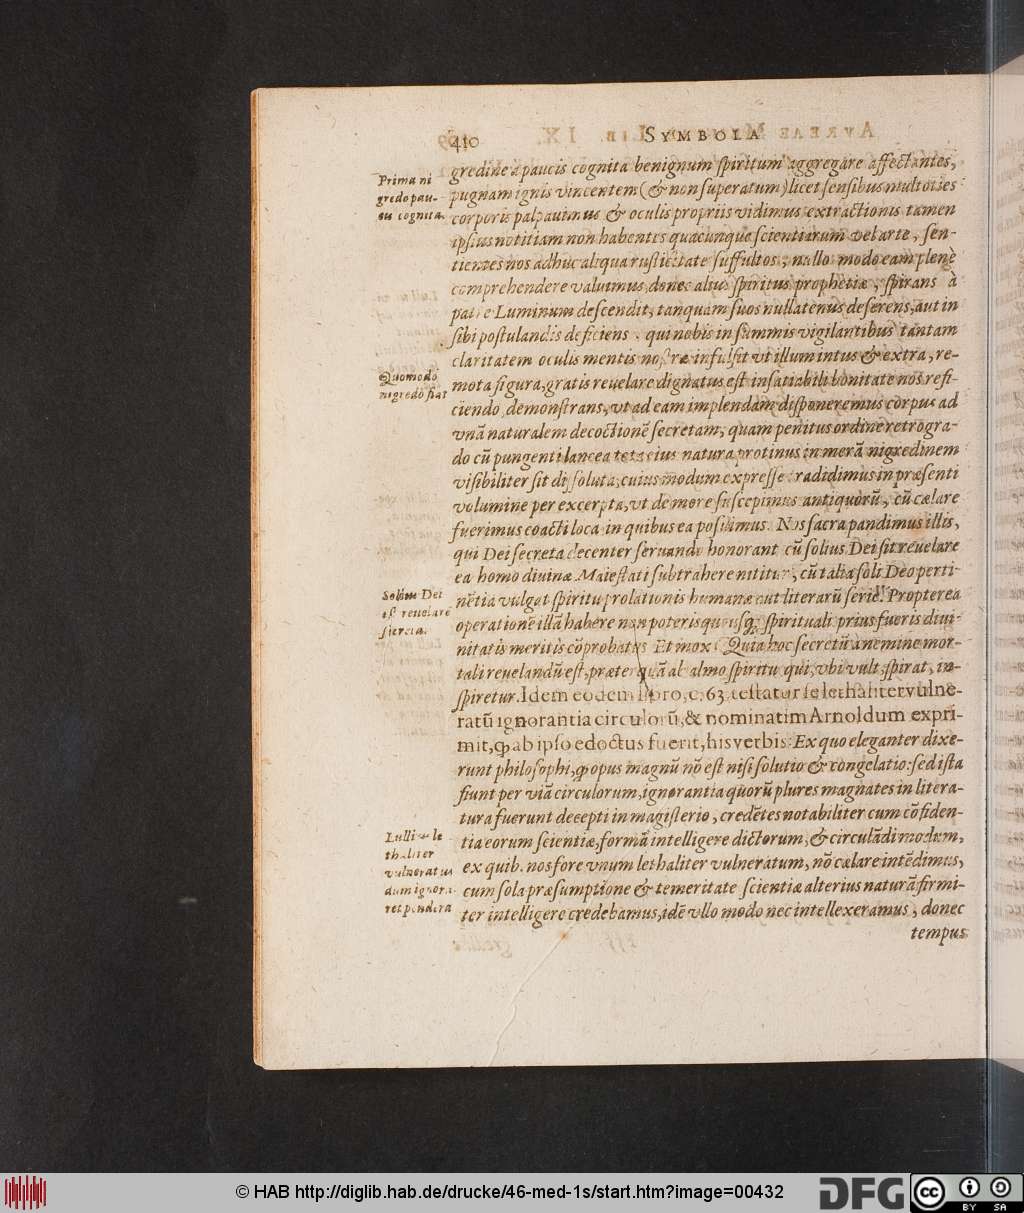 410 SYMBOLA
gredine à paucis cognita benignum spiritum aggregare affectantes,
Prima ni
gredo pau-
cis cognita.
pugnam ignis vincentem (& non superatum) licet sensibus multoties
corporis palpauimus & oculis propriis vidimus extractionis tamen
ipsius notitiam non habentes quacunque scientiarum vel arte, sen-
tientes nos adhuc aliqua rusticitate suffultos, nullo modo eam plenè
comprehendere valuimus, donec alius spiritus prophetiæ, spirans à
patre Luminum descendit, tanquam suos nullatenus deserens, aut in
sibi postulandis deficiens. qui nobis in summis vigilantibus tantam
claritatem oculis mentis nostræ infulsit vt illum intus & extra, re-
Quomodo
nigredo fiat
mota figura, gratis reuelare dignatus est insatiabili bonitate nos refi-
ciendo, demonstrans, vt ad eam implendam disponeremus corpus ad
vnā naturalem decoctionē secretam, quam penitus ordine retrogra-
do cū pungenti lancea tota eius natura protinus in merā nigredinem
visibiliter sit dissoluta, cuius modum expresse tradidimus in præsenti
volumine per excerpta, vt de more suscepimus antiquorū, cū cælare
fuerimus coacti loca in quibus ea posuimus. Nos sacra pandimus illis,
qui Dei secreta decenter seruando honorant cū solius Dei sit reuelare
ea homo diuinæ Maiestati subtrahere nititur, cū talia soli Deo perti-
Solius Dei
est reuelare
secreta.
nētia vulgat spiritu prolationis humanæ aut literarū serie. Propterea
operationē illā habere non poteris quousq; spirituali prius fueris diui-
nitatis meritis cōprobatus Et mox: Quia hoc secretū à nemine mor-
tali reuelandū est, præterquā ab almo spiritu qui, vbi vult, spirat, in-
spiretur. Idem eodem libro, c, 63. testatur se lethaliter vulne-
ratū ignorantia circulorū, & nominatim Arnoldum expri-
mit, ꝙ ab ipso edoctus fuerit, his verbis: Ex quo eleganter dixe-
runt philosophi, ꝙ opus magnū nō est nisi solutio & congelatio: sed ista
fiunt per viā circulorum, ignorantia quorū plures magnates in litera-
tura fuerunt decepti in magisterio, credētes notabiliter cum cōfiden-
Lullius le
thaliter
vulneratus
dum ignora
ret pondera
tia eorum scientiæ, formā intelligere dictorum, & circulādi modum,
ex quib. nos fore vnum lethaliter vulneratum, nō cælare intēdimus,
cum sola præsumptione & temeritate scientiæ alterius naturā firmi-
ter intelligere credebamus, idē vllo modo nec intellexeramus, donec
tempus
© HAB http://diglib.hab.de/drucke/46-med-1s/start.htm?image=00432
DFG
cc BY SA